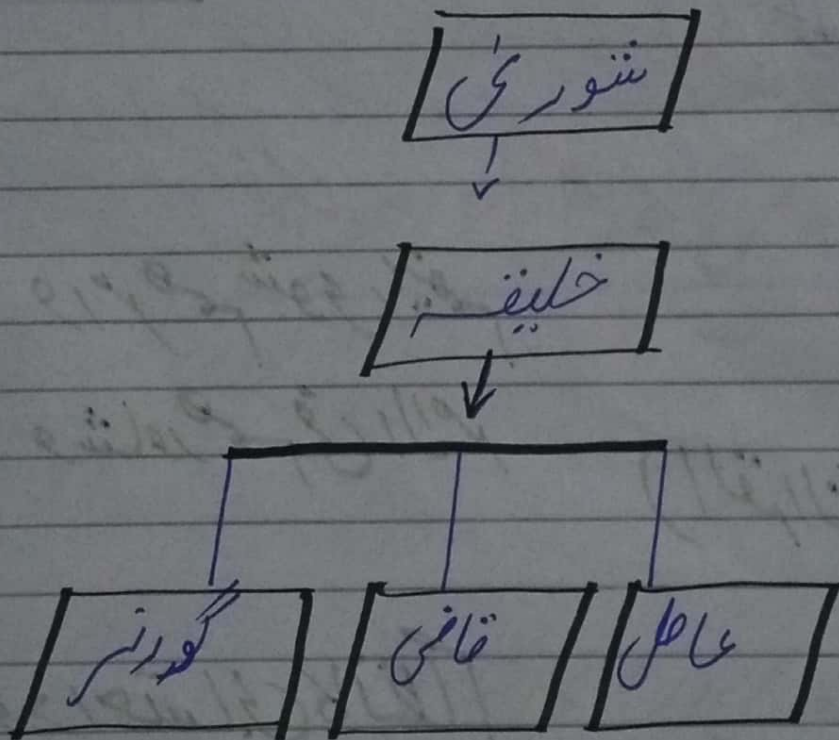 شوریٰ
خلیفہ
عامل
قاضی
گورنر